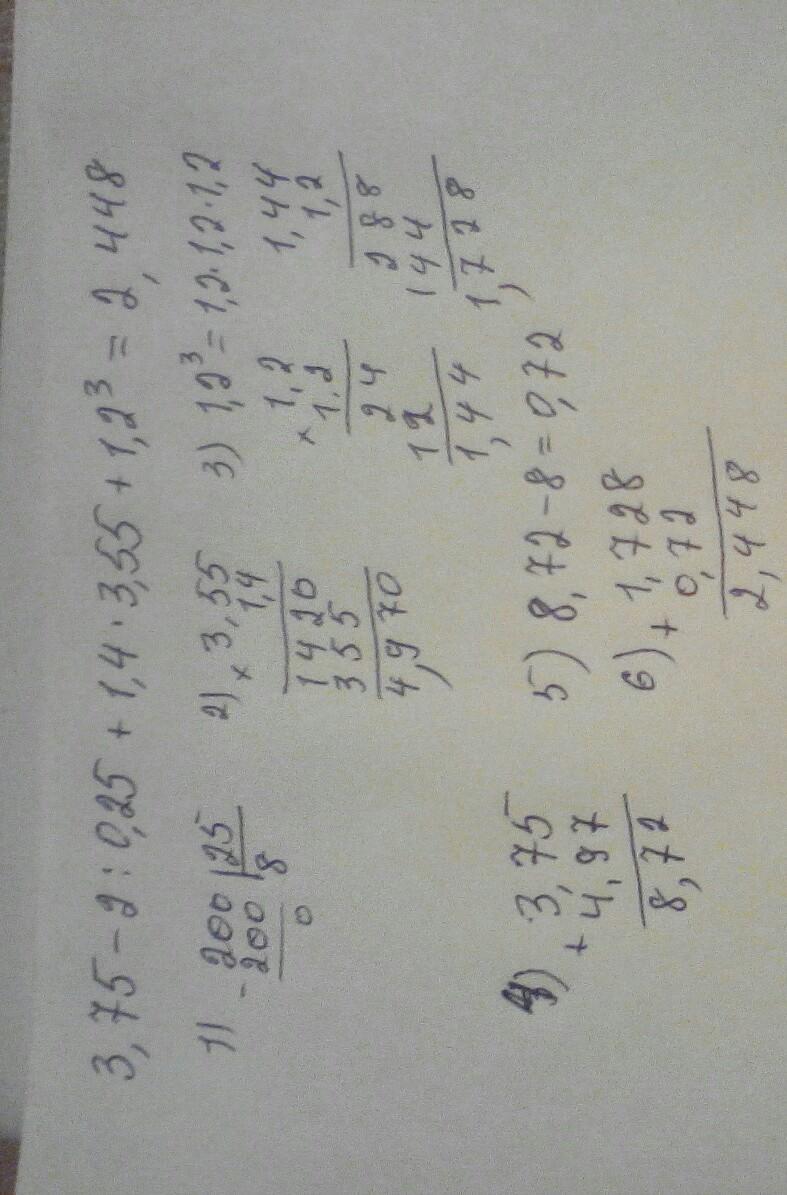 3,75 - 2 : 0,25 + 1,4 · 3,55 + 1,2³ = 2,448
1) - 200 | 25
200 | 8
0
2) × 3,55
1,4
1420
355
4,970
3) 1,2³ = 1,2 · 1,2 · 1,2
× 1,2
1,2
24
12
1,44
1,44
1,2
288
144
1,728
4) + 3,75
4,97
8,72
5) 8,72 - 8 = 0,72
6) + 1,728
0,72
2,448